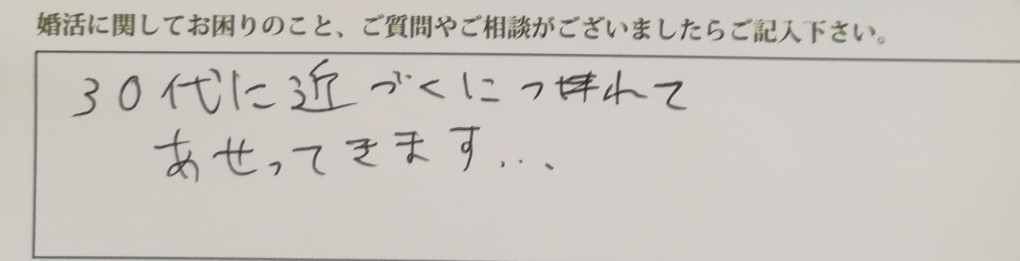 婚活に関してお困りのこと、ご質問やご相談がございましたらご記入下さい。
30代に近づくにつれて
あせってきます...